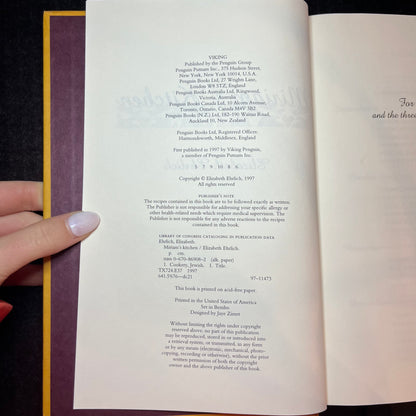 VIKING
Published by the Penguin Group
Penguin Putnam Inc., 375 Hudson Street,
New York, New York 10014, U.S.A.
Penguin Books Ltd, 27 Wrights Lane,
London W8 5TZ, England
Penguin Books Australia Ltd, Ringwood,
Victoria, Australia
Penguin Books Canada Ltd, 10 Alcorn Avenue,
Toronto, Ontario, Canada M4V 3B2
Penguin Books (N.Z.) Ltd, 182-190 Wairau Road,
Auckland 10, New Zealand
Penguin Books Ltd, Registered Offices:
Harmondsworth, Middlesex, England
First published in 1997 by Viking Penguin,
a member of Penguin Putnam Inc.
Copyright © Elizabeth Ehrlich, 1997
All rights reserved
PUBLISHER'S NOTE
The recipes contained in this book are to be followed exactly as written.
The Publisher is not responsible for addressing your specific allergy or
other health-related needs which require medical supervision. The
Publisher is not responsible for any adverse reactions to the recipes
contained in this book.
LIBRARY OF CONGRESS CATALOGING IN PUBLICATION DATA
Ehrlich, Elizabeth.
Miriam's kitchen / Elizabeth Ehrlich.
p. cm.
ISBN 0-670-86908-2 (alk. paper)
1. Cookery, Jewish. I. Title.
TX724.E37 1997
641.5'676—dc21 97-11475
This book is printed on acid-free paper.
Printed in the United States of America
Set in Bembo
Designed by Jaye Zimet
Without limiting the rights under copyright
reserved above, no part of this publication
may be reproduced, stored in or introduced into
a retrieval system, or transmitted, in any form
or by any means (electronic, mechanical, photo-
copying, recording or otherwise), without the prior
written permission of both the copyright
owner and the above publisher of this book.
For
and the three